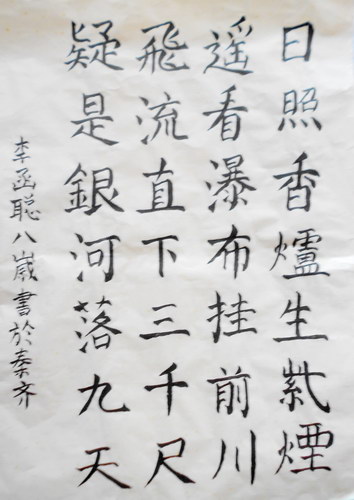 日照香爐生紫煙
遥看瀑布挂前川
飛流直下三千尺
疑是銀河落九天
李函聪八嵗書於秦齐